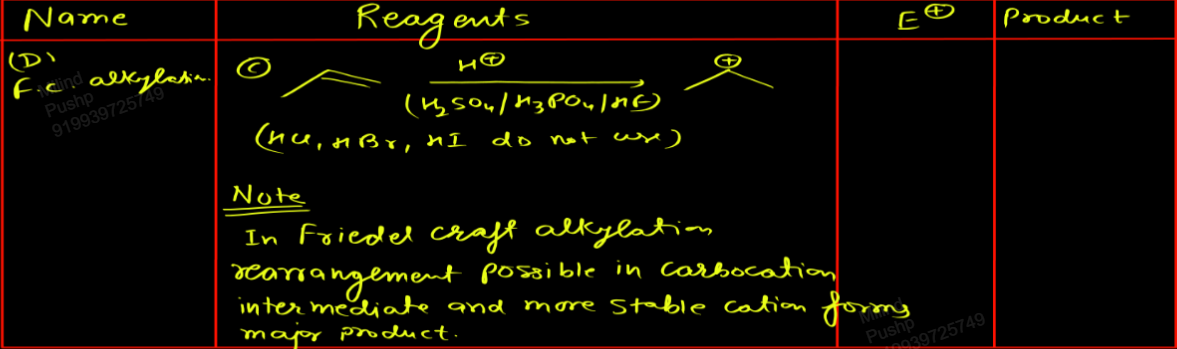 Name Reagents E⊕ Product
(D)
F.C. alkylation.
Ⓒ H⊕ ⊕
(H₂SO₄/H₃PO₄/HF)
(HCl, HBr, HI do not use)
Note
In Friedel craft alkylation
rearrangement possible in carbocation
intermediate and more stable cation forms
major product.
Milind
Pushp
919939725749
Milind
Pushp
919939725749